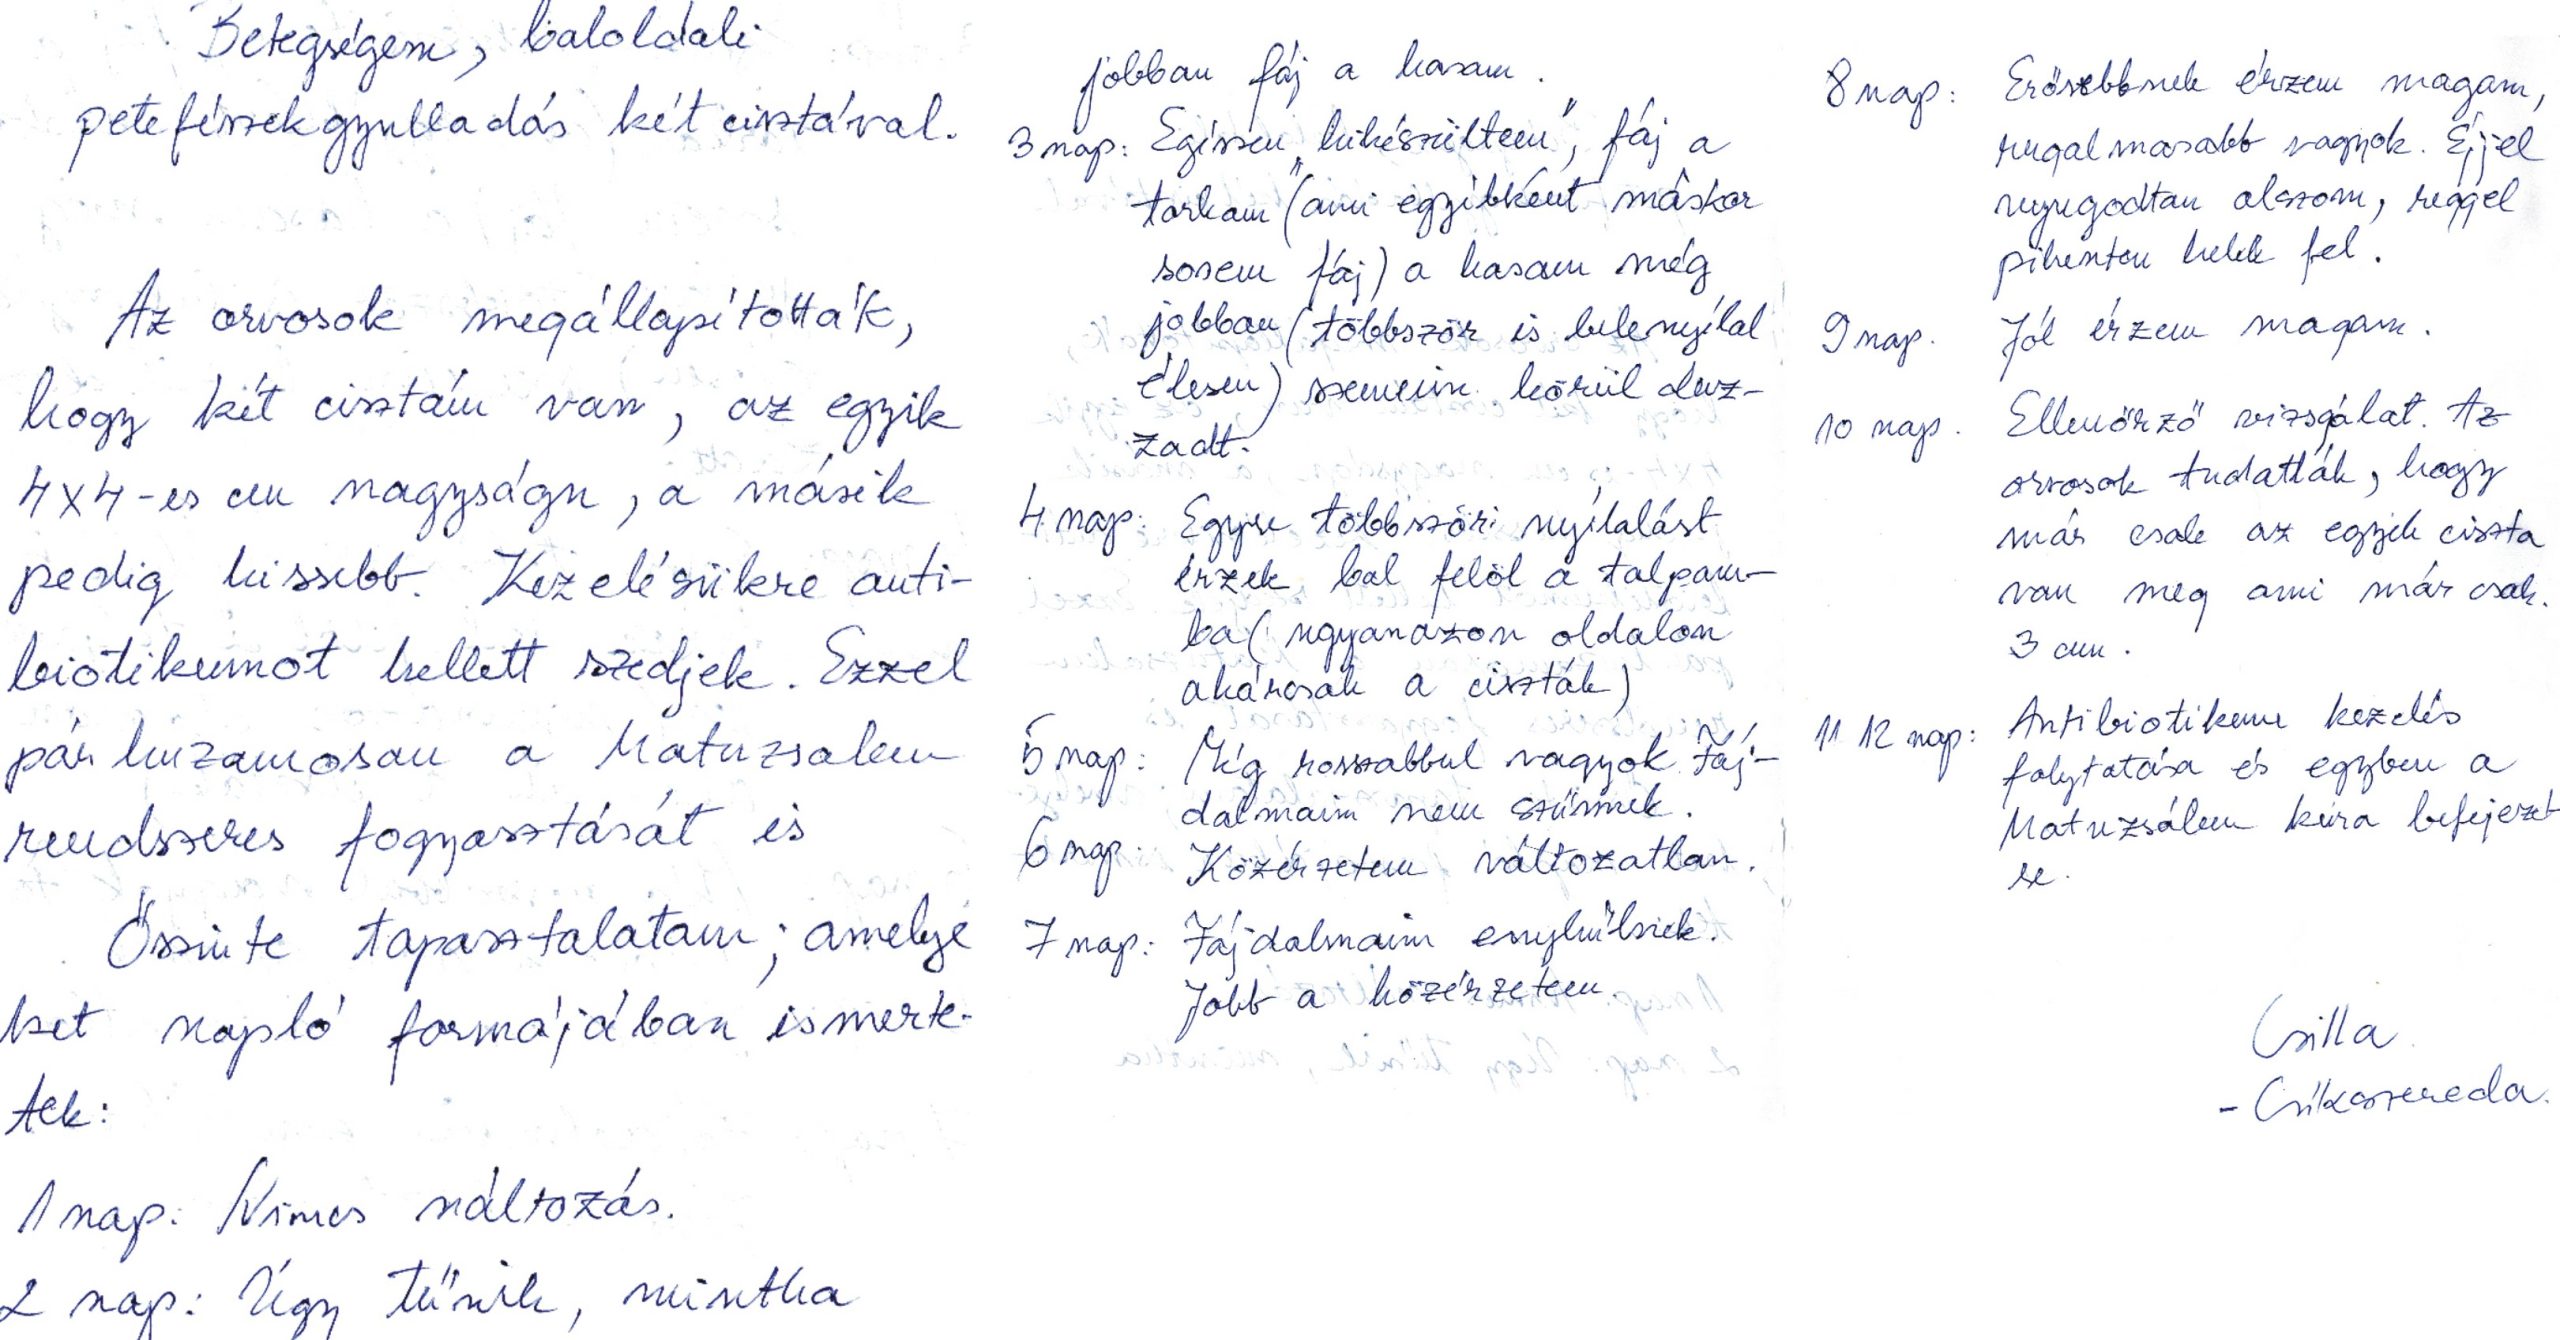 Betegségem, baloldali
petefészekgyulladás két cisztával.
Az orvosok megállapították,
hogy két cisztám van, az egyik
4x4-es cm nagyságu, a másik
pedig kissebb. Kezelésükre anti-
biotikumot kellett szedjek. Ezzel
párhuzamosan a Matuzsalem
rendszeres fogyasztását is
Őszinte tapasztalatam; amelye
ket napló formájában ismerte-
tek:
1 nap: Nincs változás.
2 nap: Úgy tűnik, mintha
jobban fáj a hasam.
3 nap: Egészen "kikészültem", fáj a
torkom (ami egyébként máskor
sosem fáj) a hasam még
jobban (többször is belenyílal
élesen) szemeim körül duz-
zadt.
4 nap: Egyre többszöri nyílalást
érzek bal felöl a talpam-
ba (ugyanazon oldalon
akárcsak a ciszták)
5 nap: Még rosszabbul vagyok Fáj-
dalmaim nem szünnek.
6 nap. Közérzetem változatlan.
7 nap: Fájdalmaim enyhülnek.
Jobb a közérzetem.
8 nap: Erősebbnek érzem magam,
rugalmasabb vagyok. Éjjel
nyugodtan alszom, reggel
pihenten kelek fel.
9 nap. Jól érzem magam.
10 nap. Ellenörző vizsgálat. Az
orvosok tudatták, hogy
már csak az egyik ciszta
van meg ami már csak.
3 cm.
11 12 nap: Antibiotikum kezelés
folytatása és egyben a
Matuzsálem kúra befejezet
se.
Csilla
- Csíkszereda.